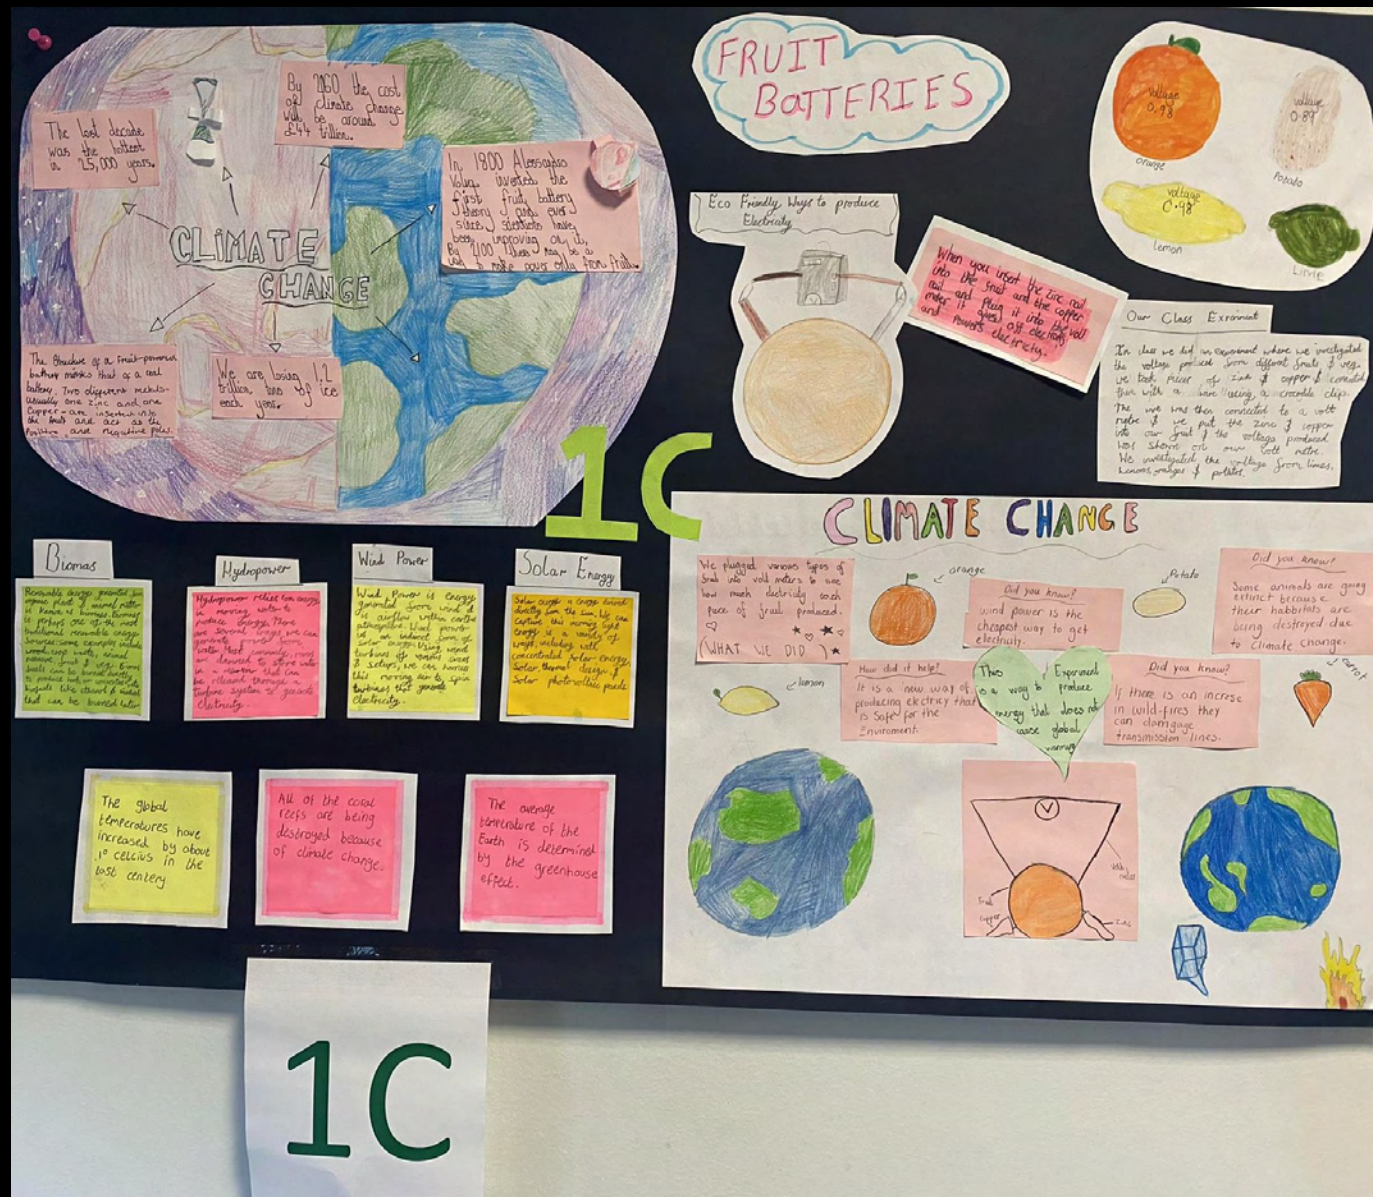 The last decade
was the hottest
in 25,000 years.
By 2060 the cost
of climate change
will be around
£44 trillion.
In 1800 Alessandro
Volta invented the
first fruit battery
theory and ever
since scientists have
been improving on it,
By 2100 there may be a
way to make power only from fruit.
CLIMATE
CHANGE
The Structure of a Fruit-powered
battery mimics that of a real
battery. Two different metals-
usually one zinc and one
Copper-are inserted into
the fruit and act as the
Positive and negative poles.
We are losing 1.2
trillion tons of ice
each year.
FRUIT
BATTERIES
voltage
0.98
orange
voltage
0.89
Potato
voltage
0.98
Lemon
Lime
Eco Friendly Ways to produce
Electricity
When you insert the zinc nail
into the fruit and the copper
nail and plug it into the volt
meter it gives off electrons
and powers electricity.
Our Class
In class we did an experiment where we investigated
the voltage produced from different fruits & veg.
we took pieces of zinc & copper & connected
them with a wire using a crocodile clip.
The wire was then connected to a volt
metre & we put the zinc & copper
into our fruit & the voltage produced
was shown on our volt metre.
We investigated the voltage from limes,
lemons, oranges & potatos.
1C
Biomas
Renewable energy generated from
organic plant & animal matter
is known as biomass. Biomass
is perhaps one of the most
traditional renewable energy
sources. some examples include
wood, crop waste, animal
manure, fruit & veg. Biomass
fuels can be burned directly
to produce heat or converted into
biofuels like ethanol &
that can be burned later
Hydropower
Hydropower relies on energy
in moving water to
produce energy. There
are several ways we can
generate power from
water. Most commonly,
are dammed to store water
in a reservoir that can
be released through a
turbine system to generate
electricity.
Wind Power
Wind Power is energy
generated from wind &
is airflow within earths
atmosphere. Wind Power
is an indirect form of
Solar energy. Using wind
turbines of various sizes
& setups, we can harness
this moving air to spin
turbines that generate
electricity.
Solar Energy
Solar energy is energy
directly from the sun. We can
capture this moving light
energy in a variety of
ways, including with
concentrated solar energy,
Solar thermal design, &
Solar photovoltaic panels
The global
temperatures have
increased by about
1° celcius in the
last centery
All of the coral
reefs are being
destroyed because
of climate change.
The average
temperature of the
Earth is determined
by the greenhouse
effect.
CLIMATE CHANGE
We plugged various types of
fruit into volt meters to see
how much electricity each
piece of fruit produced.
(WHAT WE DID)
orange
Did you know?
wind power is the
cheapest way to get
electricity.
Potato
Did you know?
Some animals are going
extinct because
their habbitats are
being destroyed due
to Climate change.
lemon
How did it help?
It is a new way of
producing elctricy that
is Safe for the
Enviroment.
This Experiment
is a way to produce
energy that does not
cause global
warming
Did you know?
If there is an increse
in wild-fires they
can damgage
transmission lines.
carrot
Volt
meter
Fruit
Copper
Zinc
1C